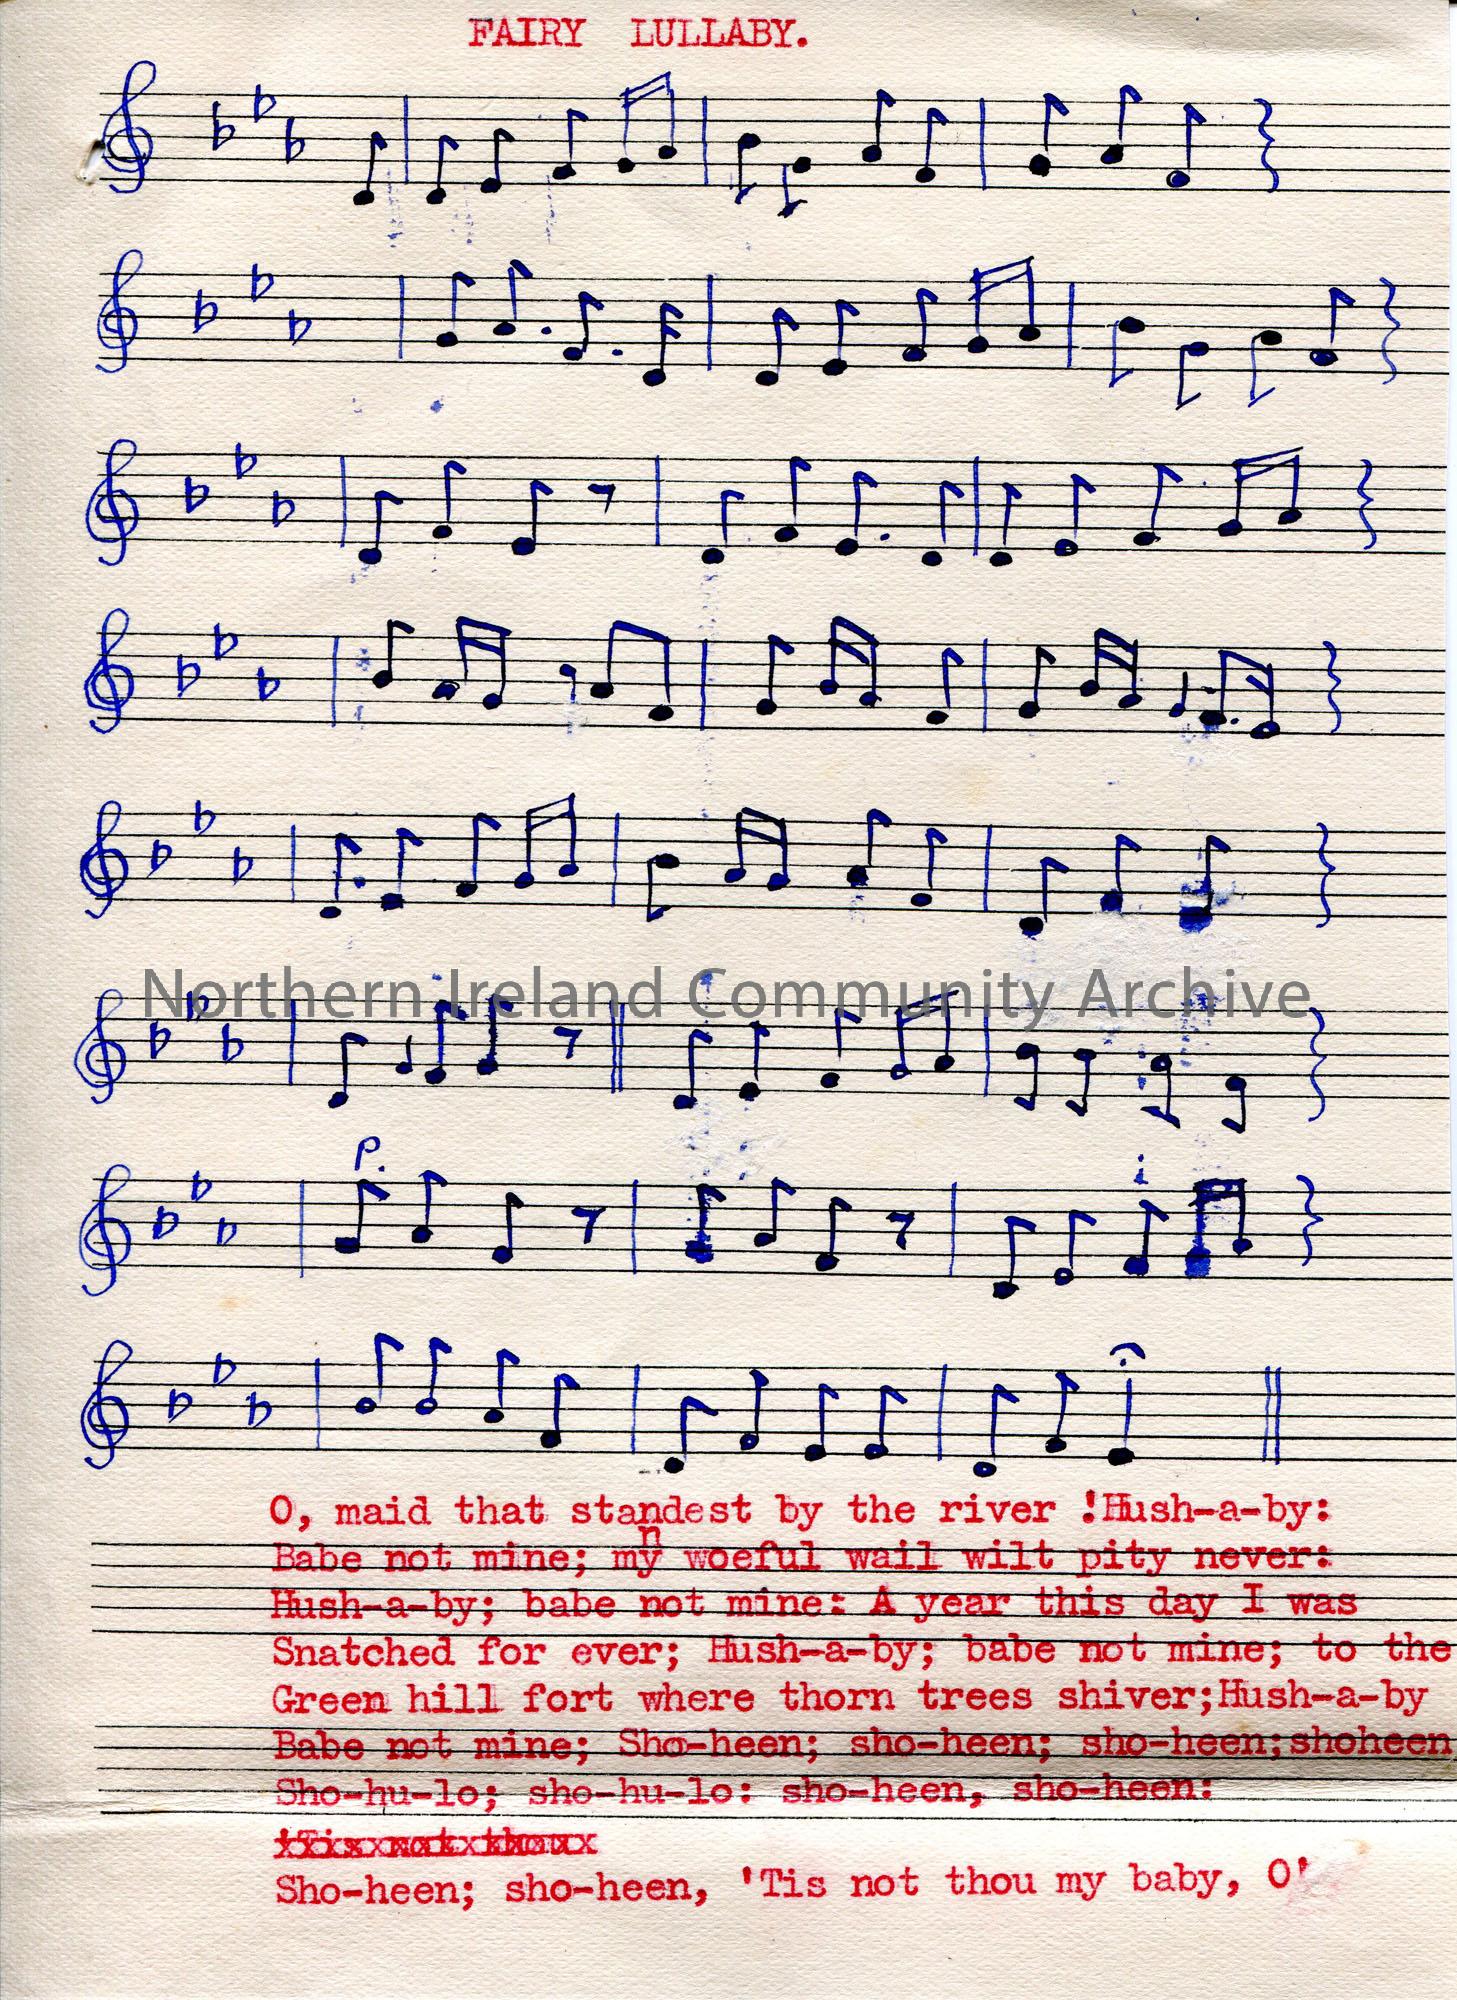 FAIRY LULLABY.
Northern Ireland Community Archive
P.
O, maid that standest by the river !Hush-a-by:
Babe not mine; myn woeful wail wilt pity never:
Hush-a-by; babe not mine: A year this day I was
Snatched for ever; Hush-a-by; babe not mine; to the
Green hill fort where thorn trees shiver;Hush-a-by
Babe not mine; Sho-heen; sho-heen; sho-heen;shoheen
Sho-hu-lo; sho-hu-lo: sho-heen, sho-heen:
Sho-heen; sho-heen, 'Tis not thou my baby, O'